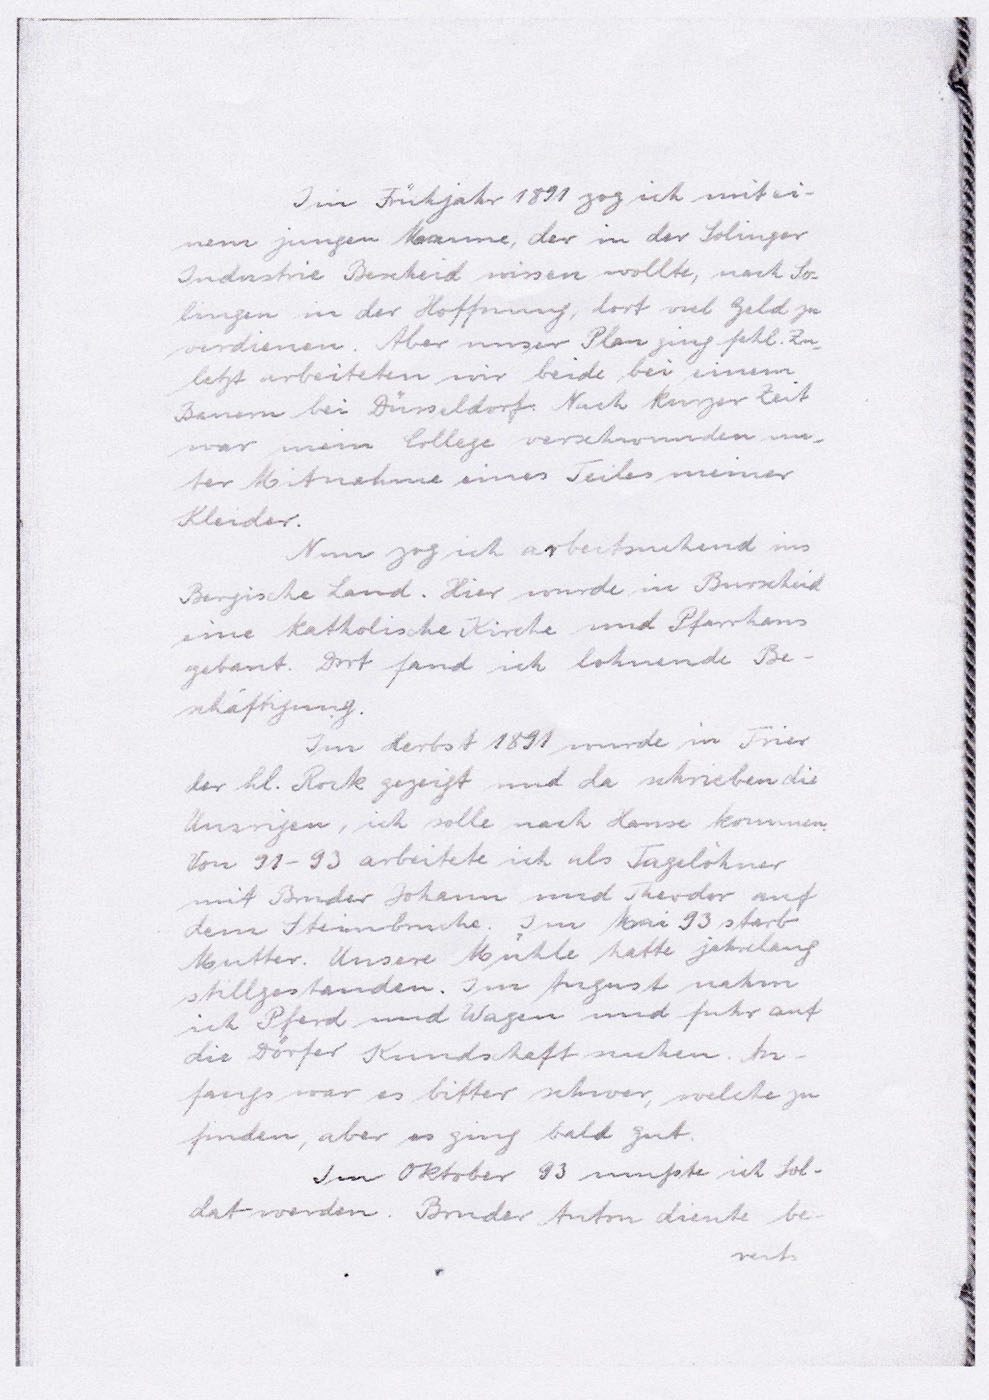 Im Frühjahr 1891 zog ich mit ei-
nem jungen Manne, der in der Solinger
Industrie Bescheid wissen wollte, nach So-
lingen in der Hoffnung, dort viel Geld zu
verdienen. Aber unser Plan ging fehl. Zu-
letzt arbeiteten wir beide bei einem
Bauern bei Düsseldorf. Nach kurzer Zeit
war mein College verschwunden un-
ter Mitnahme eines Teiles meiner
Kleider.
Nun zog ich arbeitsuchend ins
Bergische Land. Hier wurde in Burscheid
eine katholische Kirche und Pfarrhaus
gebaut. Dort fand ich lohnende Be-
schäftigung.
Im Herbst 1891 wurde in Trier
der hl. Rock gezeigt und da schrieben die
Unsrigen, ich solle nach Hause kommen.
Von 91-93 arbeitete ich als Tagelöhner
mit Bruder Johann und Theodor auf
dem Steinbruche. Im Mai 93 starb
Mutter. Unsere Mühle hatte jahrelang
stillgestanden. Im August nahm
ich Pferd und Wagen und fuhr auf
die Dörfer Kundschaft suchen. An-
fangs war es bitter schwer, welche zu
finden, aber es ging bald gut.
Im Oktober 93 mußte ich Sol-
dat werden. Bruder Anton diente be-
reits